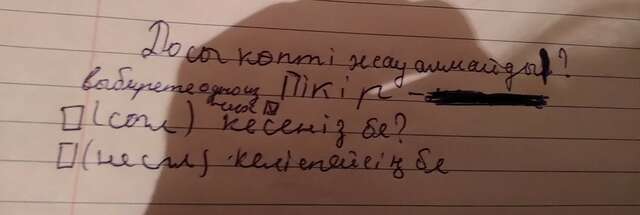 Досы көпті жау алмайды?
выбирете одного Пікір -
□ (согл) кесеніз бе?
□ (несогл) келіспейсің бе